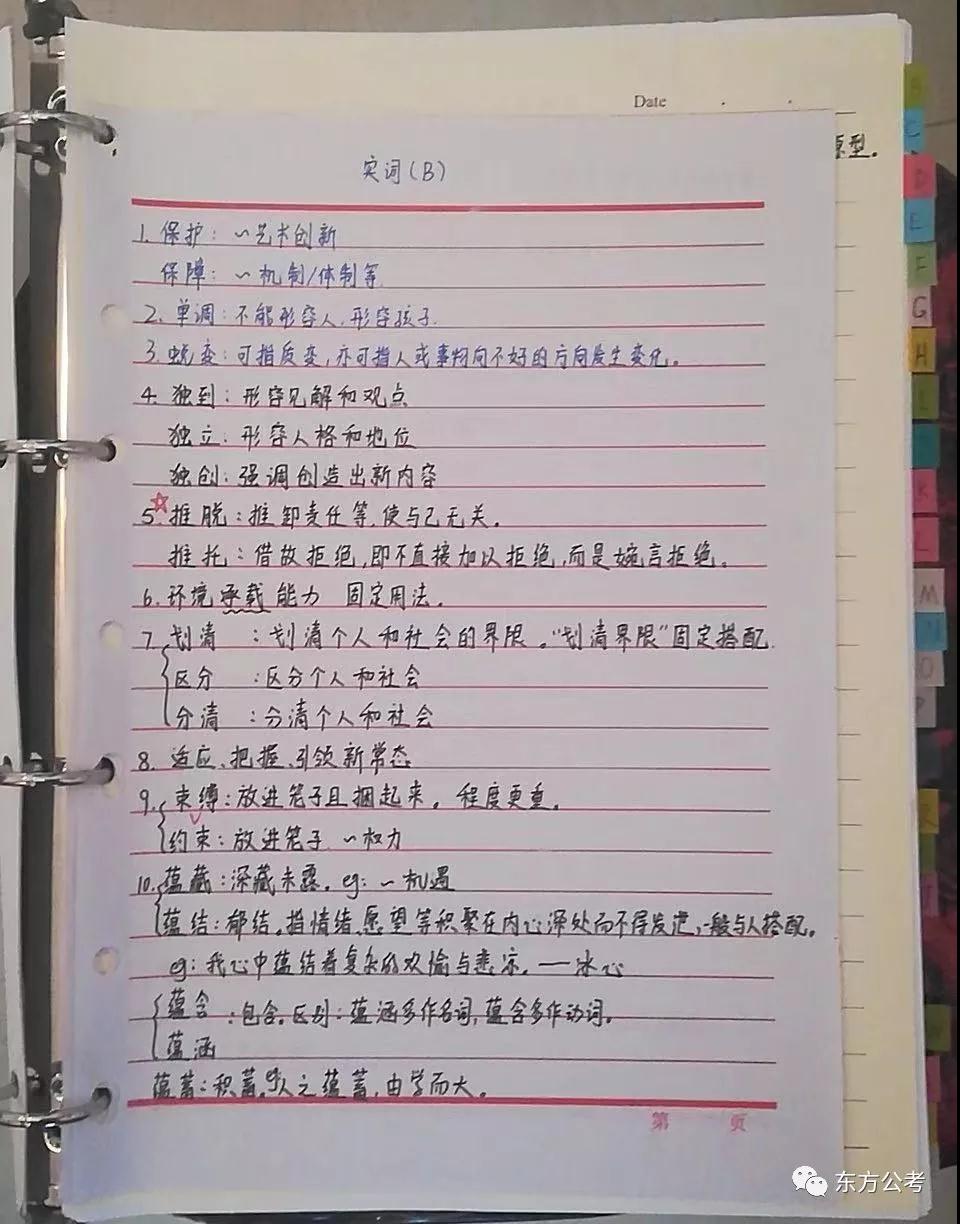 Date
原型.
实词(B)
1. 保护: ~艺术创新
保障: ~机制/体制等
2. 单调: 不能形容人,形容孩子.
3. 蜕变: 可指质变,亦可指人或事物向不好的方向发生变化。
4. 独到: 形容见解和观点
独立: 形容人格和地位
独创: 强调创造出新内容
☆
5. 推脱: 推卸责任等,使与己无关。
推托: 借故拒绝,即不直接加以拒绝,而是婉言拒绝。
6. 环境承载能力 固定用法.
7. 划清 : 划清个人和社会的界限。"划清界限"固定搭配.
区分 : 区分个人和社会
分清 : 分清个人和社会
8. 适应、把握、引领新常态
9. 束缚: 放进笼子且捆起来。程度更重。
约束: 放进笼子 ~权力
10. 蕴藏: 深藏未露. eg: ~机遇
蕴结: 郁结。指情绪、愿望等积聚在内心深处而不得发泄,一般与人搭配。
eg: 我心中蕴结着复杂的欢愉与悲凉. ——冰心
蕴含 : 包含. 区别: 蕴涵多作名词, 蕴含多作动词.
蕴涵
蕴蓄: 积蓄。eg 人之蕴蓄,由学而大。
第 页
B
C
D
E
F
G
H
K
L
M
N
O
P
东方公考